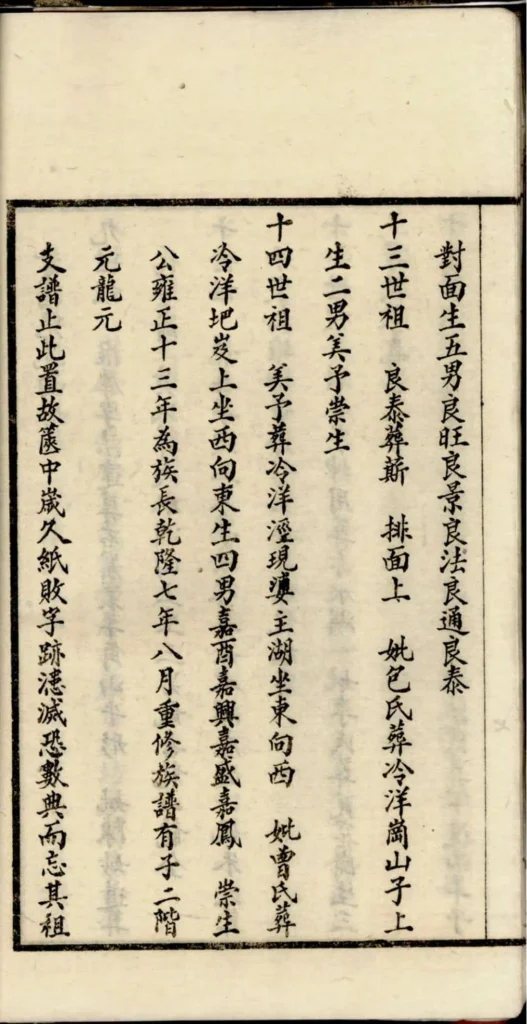 對面生五男良旺良景良法良通良泰
十三世祖 良泰葬蔪 排面上 妣包氏葬冷洋崗山子上
生二男美予崇生
十四世祖 美予葬冷洋溼現婆主湖坐東向西 妣曹氏葬
冷洋圯岌上坐西向東生四男嘉酉嘉興嘉盛嘉鳳 崇生
公雍正十三年為族長乾隆七年八月重修族譜有子二階
元龍元
支譜止此置故篋中歲久紙敗字跡漶滅恐數典而忘其祖